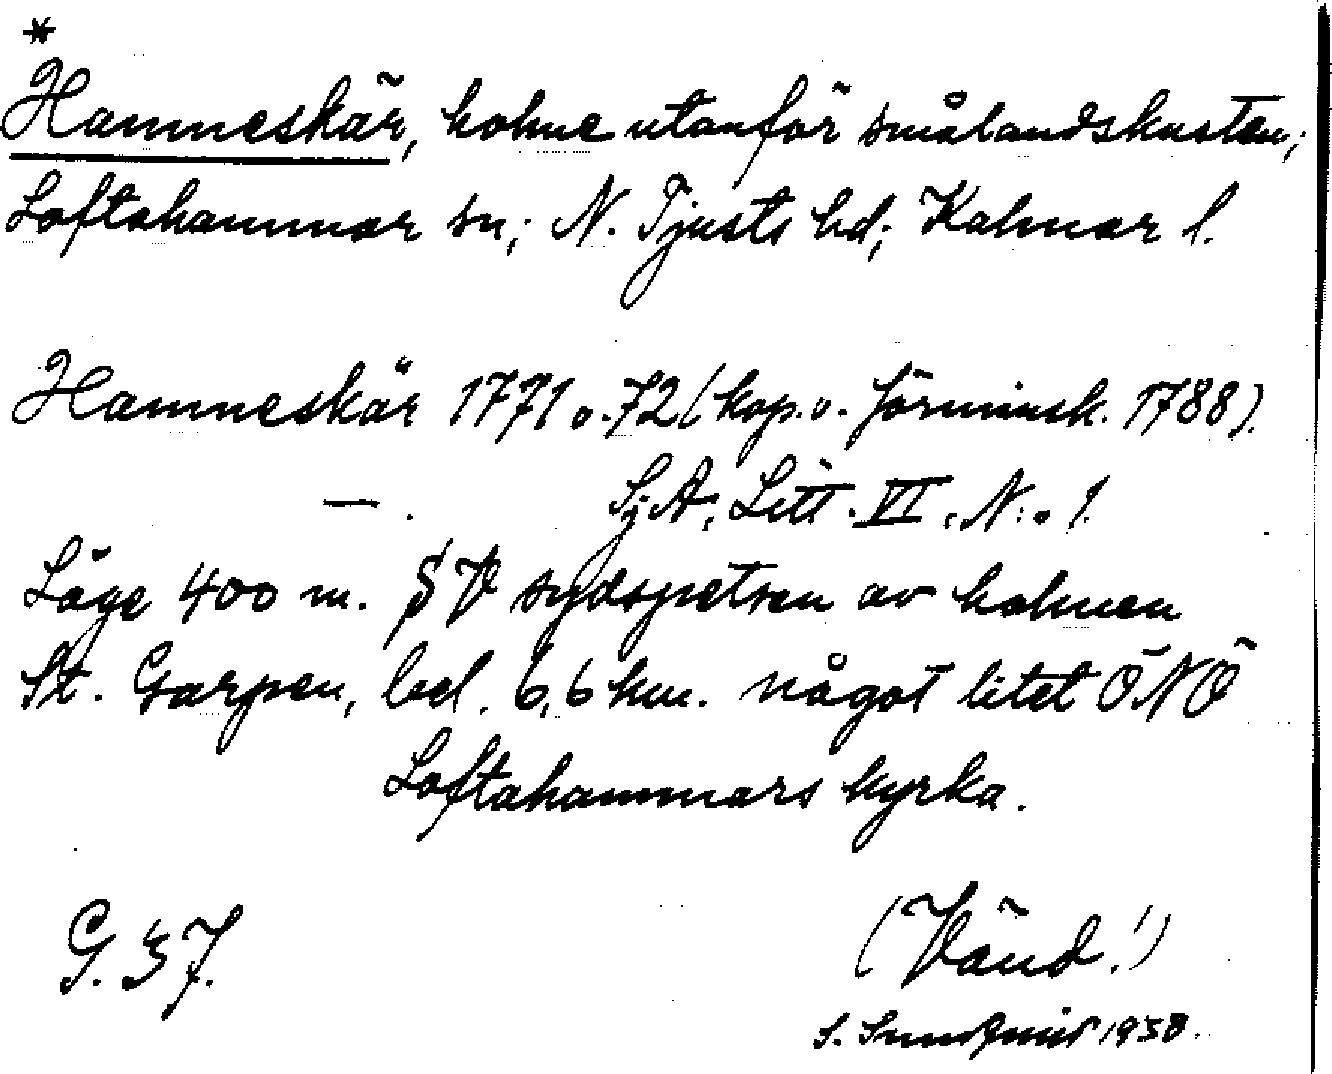 *
Hamneskär, holme utanför smålandskusten;
Loftahammar sn; N. Tjusts hd; Kalmar l.
Hamneskär 1771 o. 72 (kop. o. förminsk. 1788).
— . SjA; Litt. VI. N:o 1.
Läge 400 m. SV sydspetsen av holmen
St. Garpen, bel. 6,6 km. något litet ÖNÖ
Loftahammars kyrka.
G. 37.
(Vänd!)
S. 1938.